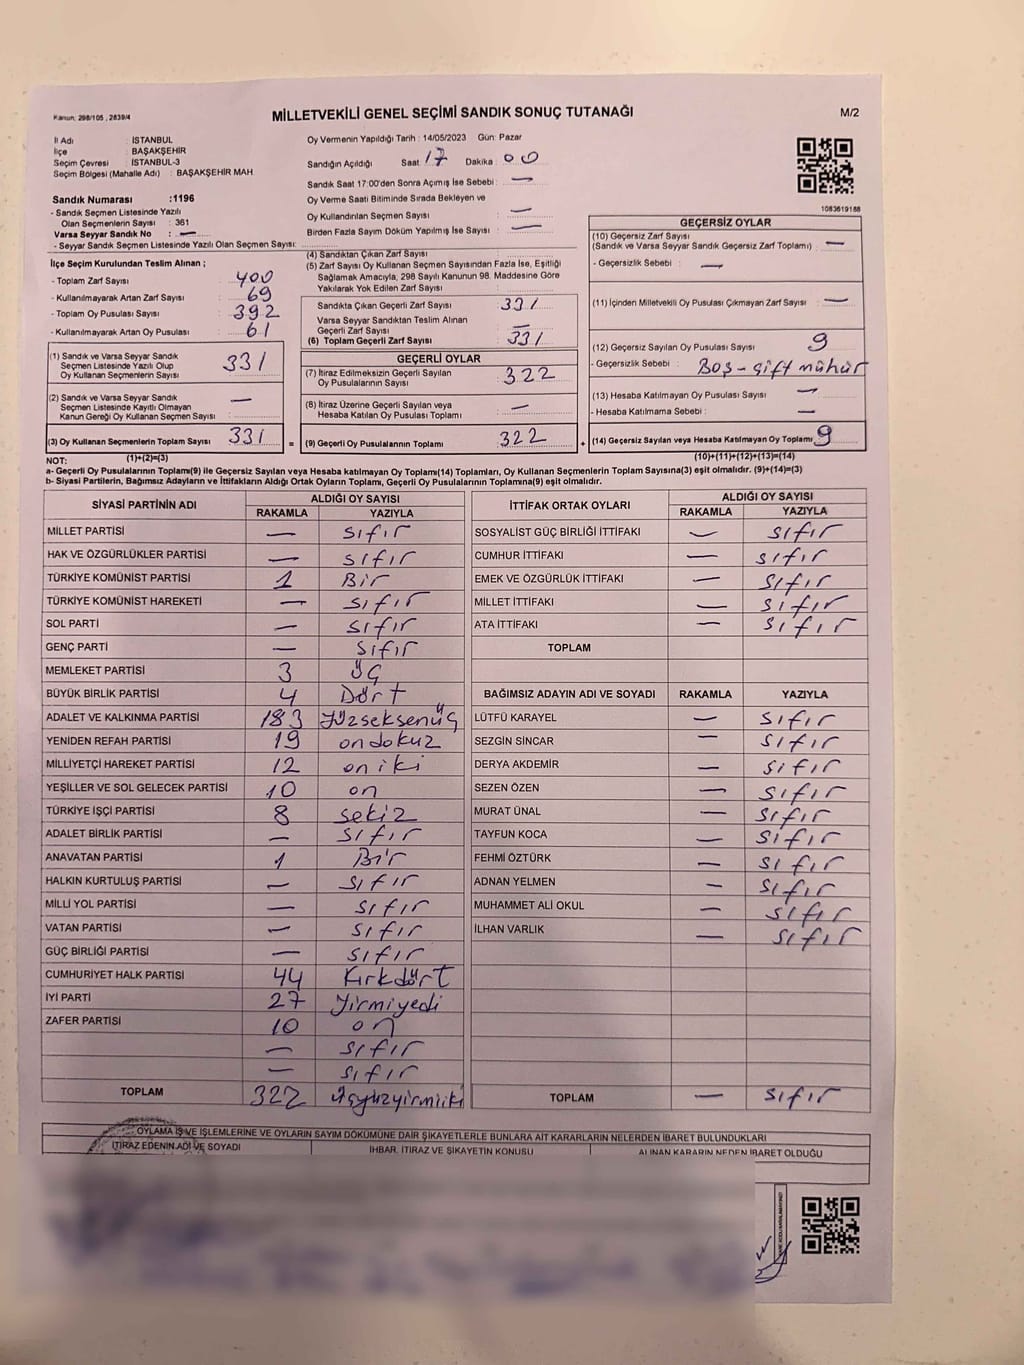 Kanun: 298/105, 2839/4
MİLLETVEKİLİ GENEL SEÇİMİ SANDIK SONUÇ TUTANAĞI
M/2
İl Adı : İSTANBUL
İlçe : BAŞAKŞEHİR
Seçim Çevresi : İSTANBUL-3
Seçim Bölgesi (Mahalle Adı) : BAŞAKŞEHİR MAH.
Sandık Numarası :1196
- Sandık Seçmen Listesinde Yazılı
Olan Seçmenlerin Sayısı : 361
Varsa Seyyar Sandık No : —
- Seyyar Sandık Seçmen Listesinde Yazılı Olan Seçmen Sayısı:
Oy Vermenin Yapıldığı Tarih : 14/05/2023 Gün: Pazar
Sandığın Açıldığı Saat 17 Dakika : 00
Sandık Saat 17:00'den Sonra Açımış İse Sebebi : —
Oy Verme Saati Bitiminde Sırada Bekleyen ve
Oy Kullandırılan Seçmen Sayısı —
Birden Fazla Sayım Döküm Yapılmış İse Sayısı : —
1083619188
İlçe Seçim Kurulundan Teslim Alınan ;
- Toplam Zarf Sayısı : 400
- Kullanılmayarak Artan Zarf Sayısı : 69
- Toplam Oy Pusulası Sayısı : 392
- Kullanılmayarak Artan Oy Pusulası : 61
(1) Sandık ve Varsa Seyyar Sandık
Seçmen Listesinde Yazılı Olup
Oy Kullanan Seçmenlerin Sayısı : 331
(2) Sandık ve Varsa Seyyar Sandık
Seçmen Listesinde Kayıtlı Olmayan
Kanun Gereği Oy Kullanan Seçmen Sayısı : —
(3) Oy Kullanan Seçmenlerin Toplam Sayısı 331
(4) Sandıktan Çıkan Zarf Sayısı :
(5) Zarf Sayısı Oy Kullanan Seçmen Sayısından Fazla İse, Eşitliği
Sağlamak Amacıyla, 298 Sayılı Kanunun 98. Maddesine Göre
Yakılarak Yok Edilen Zarf Sayısı :
Sandıkta Çıkan Geçerli Zarf Sayısı : 331
Varsa Seyyar Sandıktan Teslim Alınan
Geçerli Zarf Sayısı : —
(6) Toplam Geçerli Zarf Sayısı : 331
GEÇERLİ OYLAR
(7) İtiraz Edilmeksizin Geçerli Sayılan
Oy Pusulalarının Sayısı : 322
(8) İtiraz Üzerine Geçerli Sayılan veya
Hesaba Katılan Oy Pusulası Toplamı : —
= (9) Geçerli Oy Pusulalarının Toplamı 322 +
GEÇERSİZ OYLAR
(10) Geçersiz Zarf Sayısı
(Sandık ve Varsa Seyyar Sandık Geçersiz Zarf Toplamı) : —
- Geçersizlik Sebebi : —
(11) İçinden Milletvekili Oy Pusulası Çıkmayan Zarf Sayısı : —
(12) Geçersiz Sayılan Oy Pusulası Sayısı : 9
- Geçersizlik Sebebi : Boş - çift mühür
(13) Hesaba Katılmayan Oy Pusulası Sayısı : —
- Hesaba Katılmama Sebebi : —
(14) Geçersiz Sayılan veya Hesaba Katılmayan Oy Toplamı 9
NOT: (1)+(2)=(3) (10)+(11)+(12)+(13)=(14)
a- Geçerli Oy Pusulalarının Toplamı(9) ile Geçersiz Sayılan veya Hesaba katılmayan Oy Toplamı(14) Toplamları, Oy Kullanan Seçmenlerin Toplam Sayısına(3) eşit olmalıdır. (9)+(14)=(3)
b- Siyasi Partilerin, Bağımsız Adayların ve İttifakların Aldığı Ortak Oyların Toplamı, Geçerli Oy Pusulalarının Toplamına(9) eşit olmalıdır.
SİYASİ PARTİNİN ADI ALDIĞI OY SAYISI
RAKAMLA YAZIYLA
MİLLET PARTİSİ — sıfır
HAK VE ÖZGÜRLÜKLER PARTİSİ — sıfır
TÜRKİYE KOMÜNİST PARTİSİ 1 Bir
TÜRKİYE KOMÜNİST HAREKETİ — sıfır
SOL PARTİ — sıfır
GENÇ PARTİ — sıfır
MEMLEKET PARTİSİ 3 üç
BÜYÜK BİRLİK PARTİSİ 4 Dört
ADALET VE KALKINMA PARTİSİ 183 Yüzseksenüç
YENİDEN REFAH PARTİSİ 19 ondokuz
MİLLİYETÇİ HAREKET PARTİSİ 12 oniki
YEŞİLLER VE SOL GELECEK PARTİSİ 10 on
TÜRKİYE İŞÇİ PARTİSİ 8 sekiz
ADALET BİRLİK PARTİSİ — sıfır
ANAVATAN PARTİSİ 1 Bir
HALKIN KURTULUŞ PARTİSİ — sıfır
MİLLİ YOL PARTİSİ — sıfır
VATAN PARTİSİ — sıfır
GÜÇ BİRLİĞİ PARTİSİ — sıfır
CUMHURİYET HALK PARTİSİ 44 Kırkdört
İYİ PARTİ 27 Yirmiyedi
ZAFER PARTİSİ 10 on
— sıfır
— sıfır
TOPLAM 322 üçyüzyirmiiki
İTTİFAK ORTAK OYLARI ALDIĞI OY SAYISI
RAKAMLA YAZIYLA
SOSYALİST GÜÇ BİRLİĞİ İTTİFAKI — sıfır
CUMHUR İTTİFAKI — sıfır
EMEK VE ÖZGÜRLÜK İTTİFAKI — sıfır
MİLLET İTTİFAKI — sıfır
ATA İTTİFAKI — sıfır
TOPLAM
BAĞIMSIZ ADAYIN ADI VE SOYADI RAKAMLA YAZIYLA
LÜTFÜ KARAYEL — sıfır
SEZGİN SİNCAR — sıfır
DERYA AKDEMİR — sıfır
SEZEN ÖZEN — sıfır
MURAT ÜNAL — sıfır
TAYFUN KOCA — sıfır
FEHMİ ÖZTÜRK — sıfır
ADNAN YELMEN — sıfır
MUHAMMET ALİ OKUL — sıfır
İLHAN VARLIK — sıfır
TOPLAM — sıfır
OYLAMA İŞ VE İŞLEMLERİNE VE OYLARIN SAYIM DÖKÜMÜNE DAİR ŞİKAYETLERLE BUNLARA AİT KARARLARIN NELERDEN İBARET BULUNDUKLARI
İTİRAZ EDENİN ADI VE SOYADI İHBAR, İTİRAZ VE ŞİKAYETİN KONUSU ALINAN KARARIN NEDEN İBARET OLDUĞU